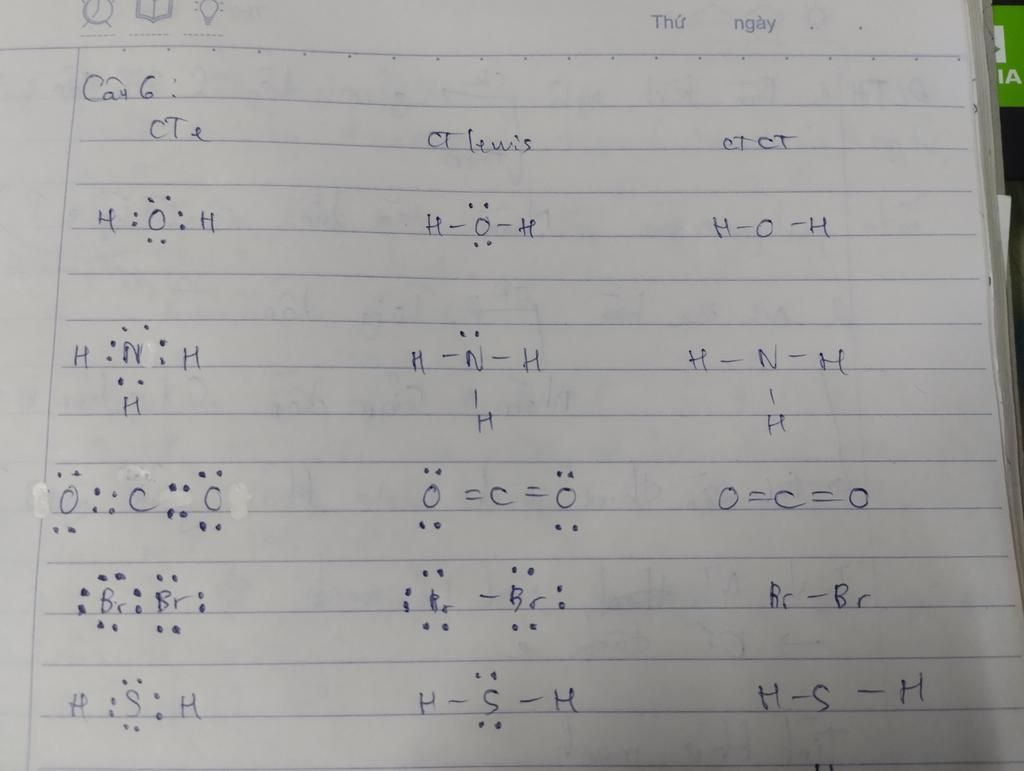 Thứ ngày . .
IA
Câu 6 :
CTe CT lewis CTCT
H :Ö: H H – Ö – H H – O – H
H :N̈: H H – N̈ – H H – N – H
H H H
O :: C :: O O = C = O O = C = O
:Br: Br: :Br – Br: Br – Br
H :S̈: H H – S̈ – H H – S – H